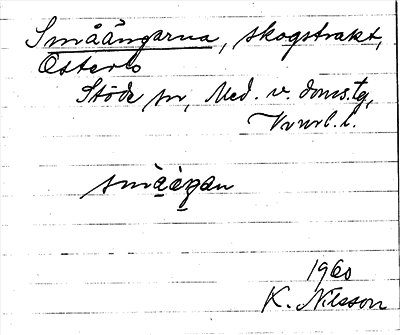 Småängarna, skogstrakt,
Österlo
Stöde sn, Med. v. doms.tg,
Vnrl. l.
småàŋan
1960
K. Nilsson